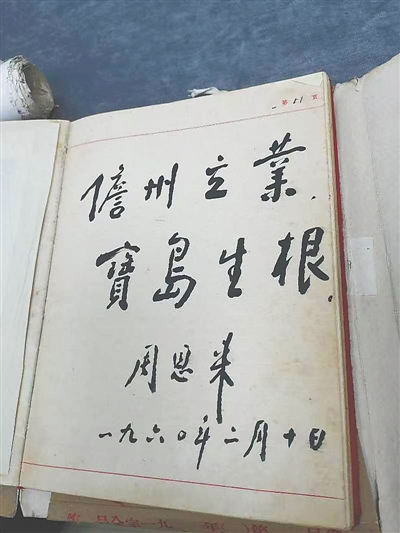 第51页
儋州立業，
寶島生根。
周恩来
一九六〇年二月十日